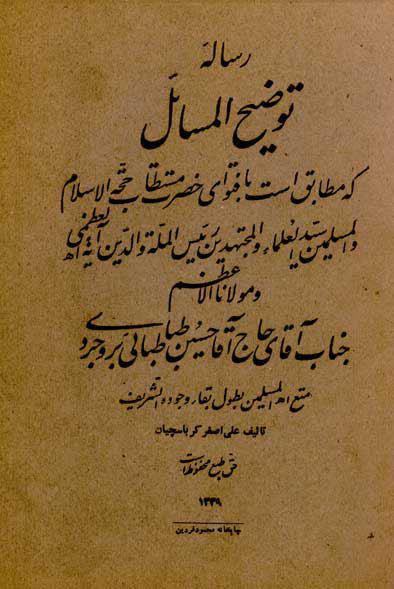 رسالهٔ
توضیح المسائل
که مطابق است با فتوای حضرت مستطاب حجة الاسلام
والمسلمین سید العلماء والمجتهدین رئیس الملة والدین آیة الله العظمی
و مولانا الاعظم
جناب آقای حاج آقا حسین طباطبائی بروجردی
متع الله المسلمین بطول بقاء وجوده الشریف
تالیف علی اصغر کرباسچیان
حق طبع محفوظ است
۱۳۳۹
چاپخانه محمود فردین